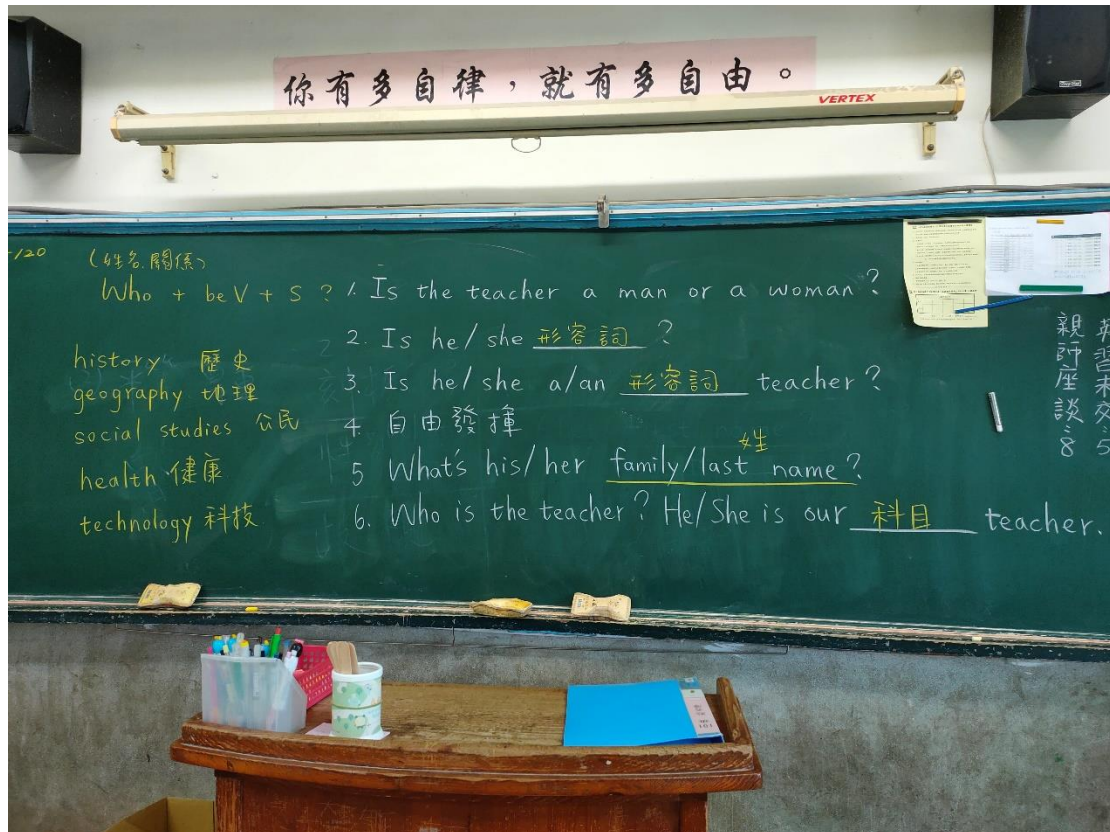 你有多自律，就有多自由。
VERTEX
-120
(姓名.關係)
Who + beV + S ?
history 歷史
geography 地理
social studies 公民
health 健康
technology 科技
1. Is the teacher a man or a woman?
2. Is he/she 形容詞 ?
3. Is he/she a/an 形容詞 teacher?
4. 自由發揮
姓
5 What's his/her family/last name?
6. Who is the teacher? He/She is our 科目 teacher.
英習未交:5
親師座談:8